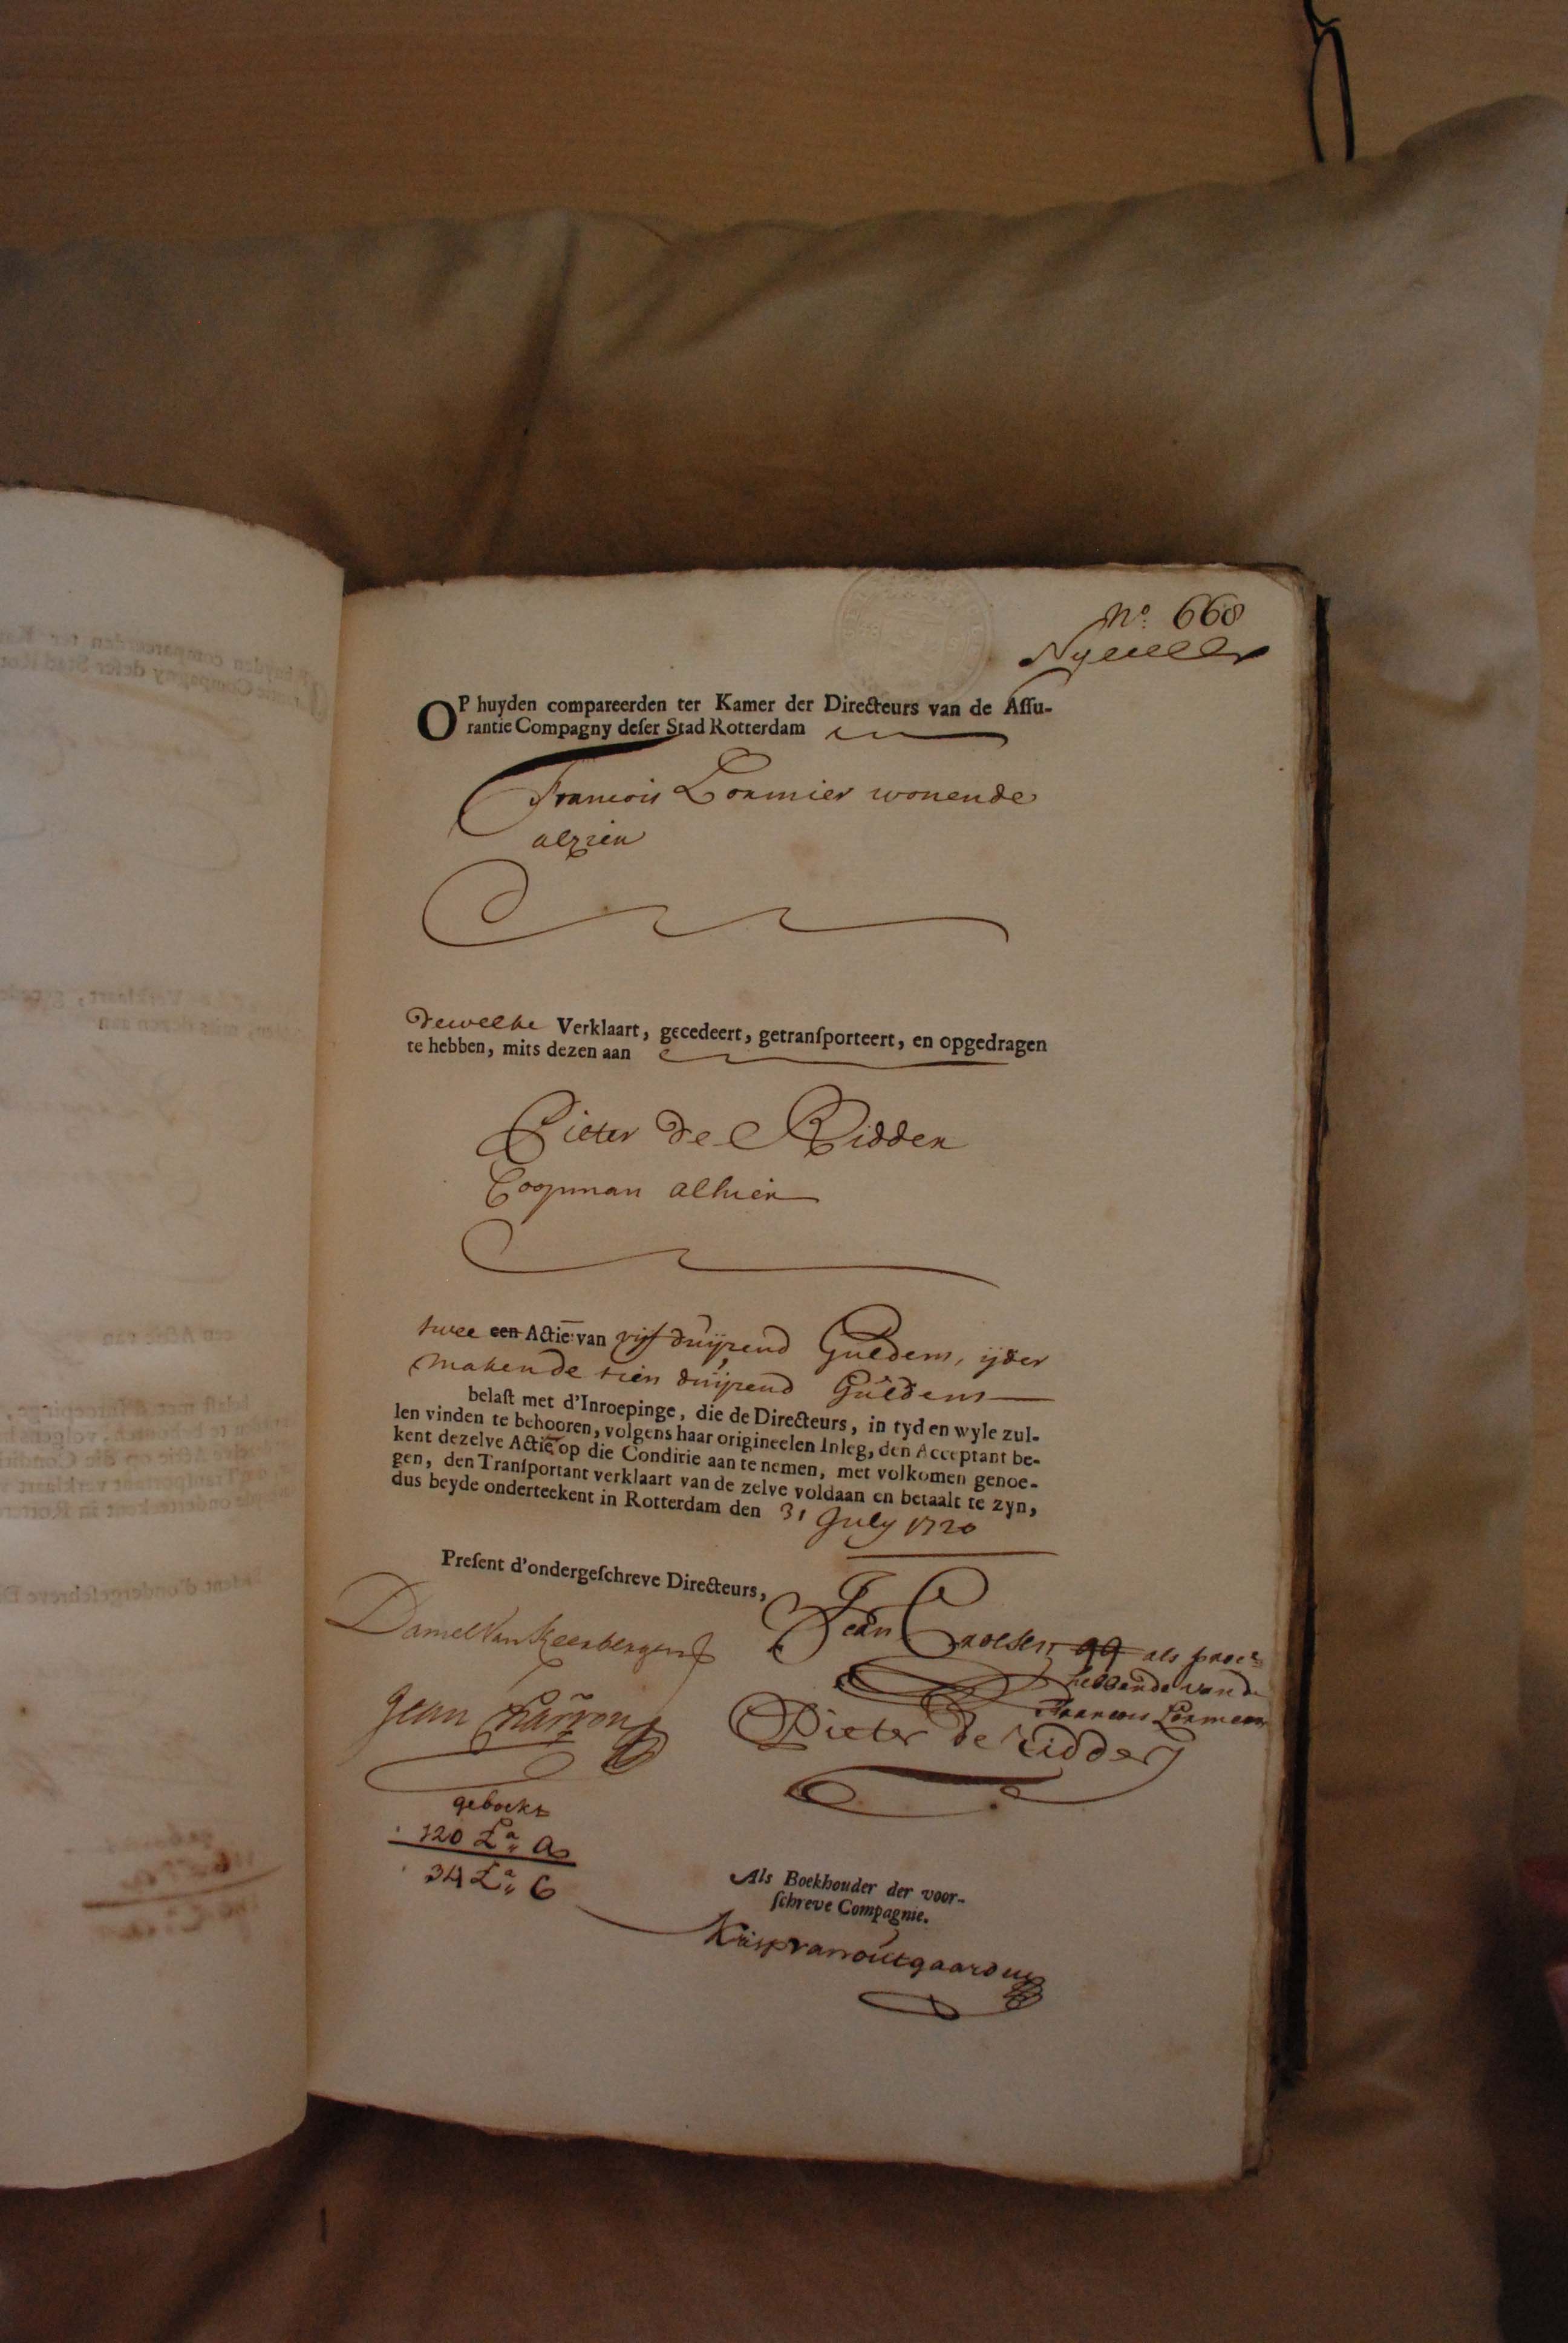 No. 668
OP huyden compareerden ter Kamer der Directeurs van de Assu-
rantie Compagny deser Stad Rotterdam
Francois Lormier wonende
alhier
dewelke Verklaart, gecedeert, getransporteert, en opgedragen
te hebben, mits dezen aan
Pieter de Ridder
Coopman alhier
twee een Actien van vijf duijzend Guldens, ijder
makende tien duijzend Guldens
belast met d'Inroepinge, die de Directeurs, in tyd en wyle zul-
len vinden te behooren, volgens haar origineelen Inleg, den Acceptant be-
kent dezelve Actie op die Conditie aan te nemen, met volkomen genoe-
gen, den Transportant verklaart van de zelve voldaan en betaalt te zyn,
dus beyde onderteekent in Rotterdam den 31 July 1720
Present d'ondergeschreve Directeurs,
Daniel Van Keerbergen
Jean Croesen qq als proc
hebbende van de
Francois Lormier
Jean Harron
Pieter de Ridder
geboekt
120 La. A
34 La. C
Als Boekhouder der voor-
schreve Compagnie.
Krisp van outgaarden